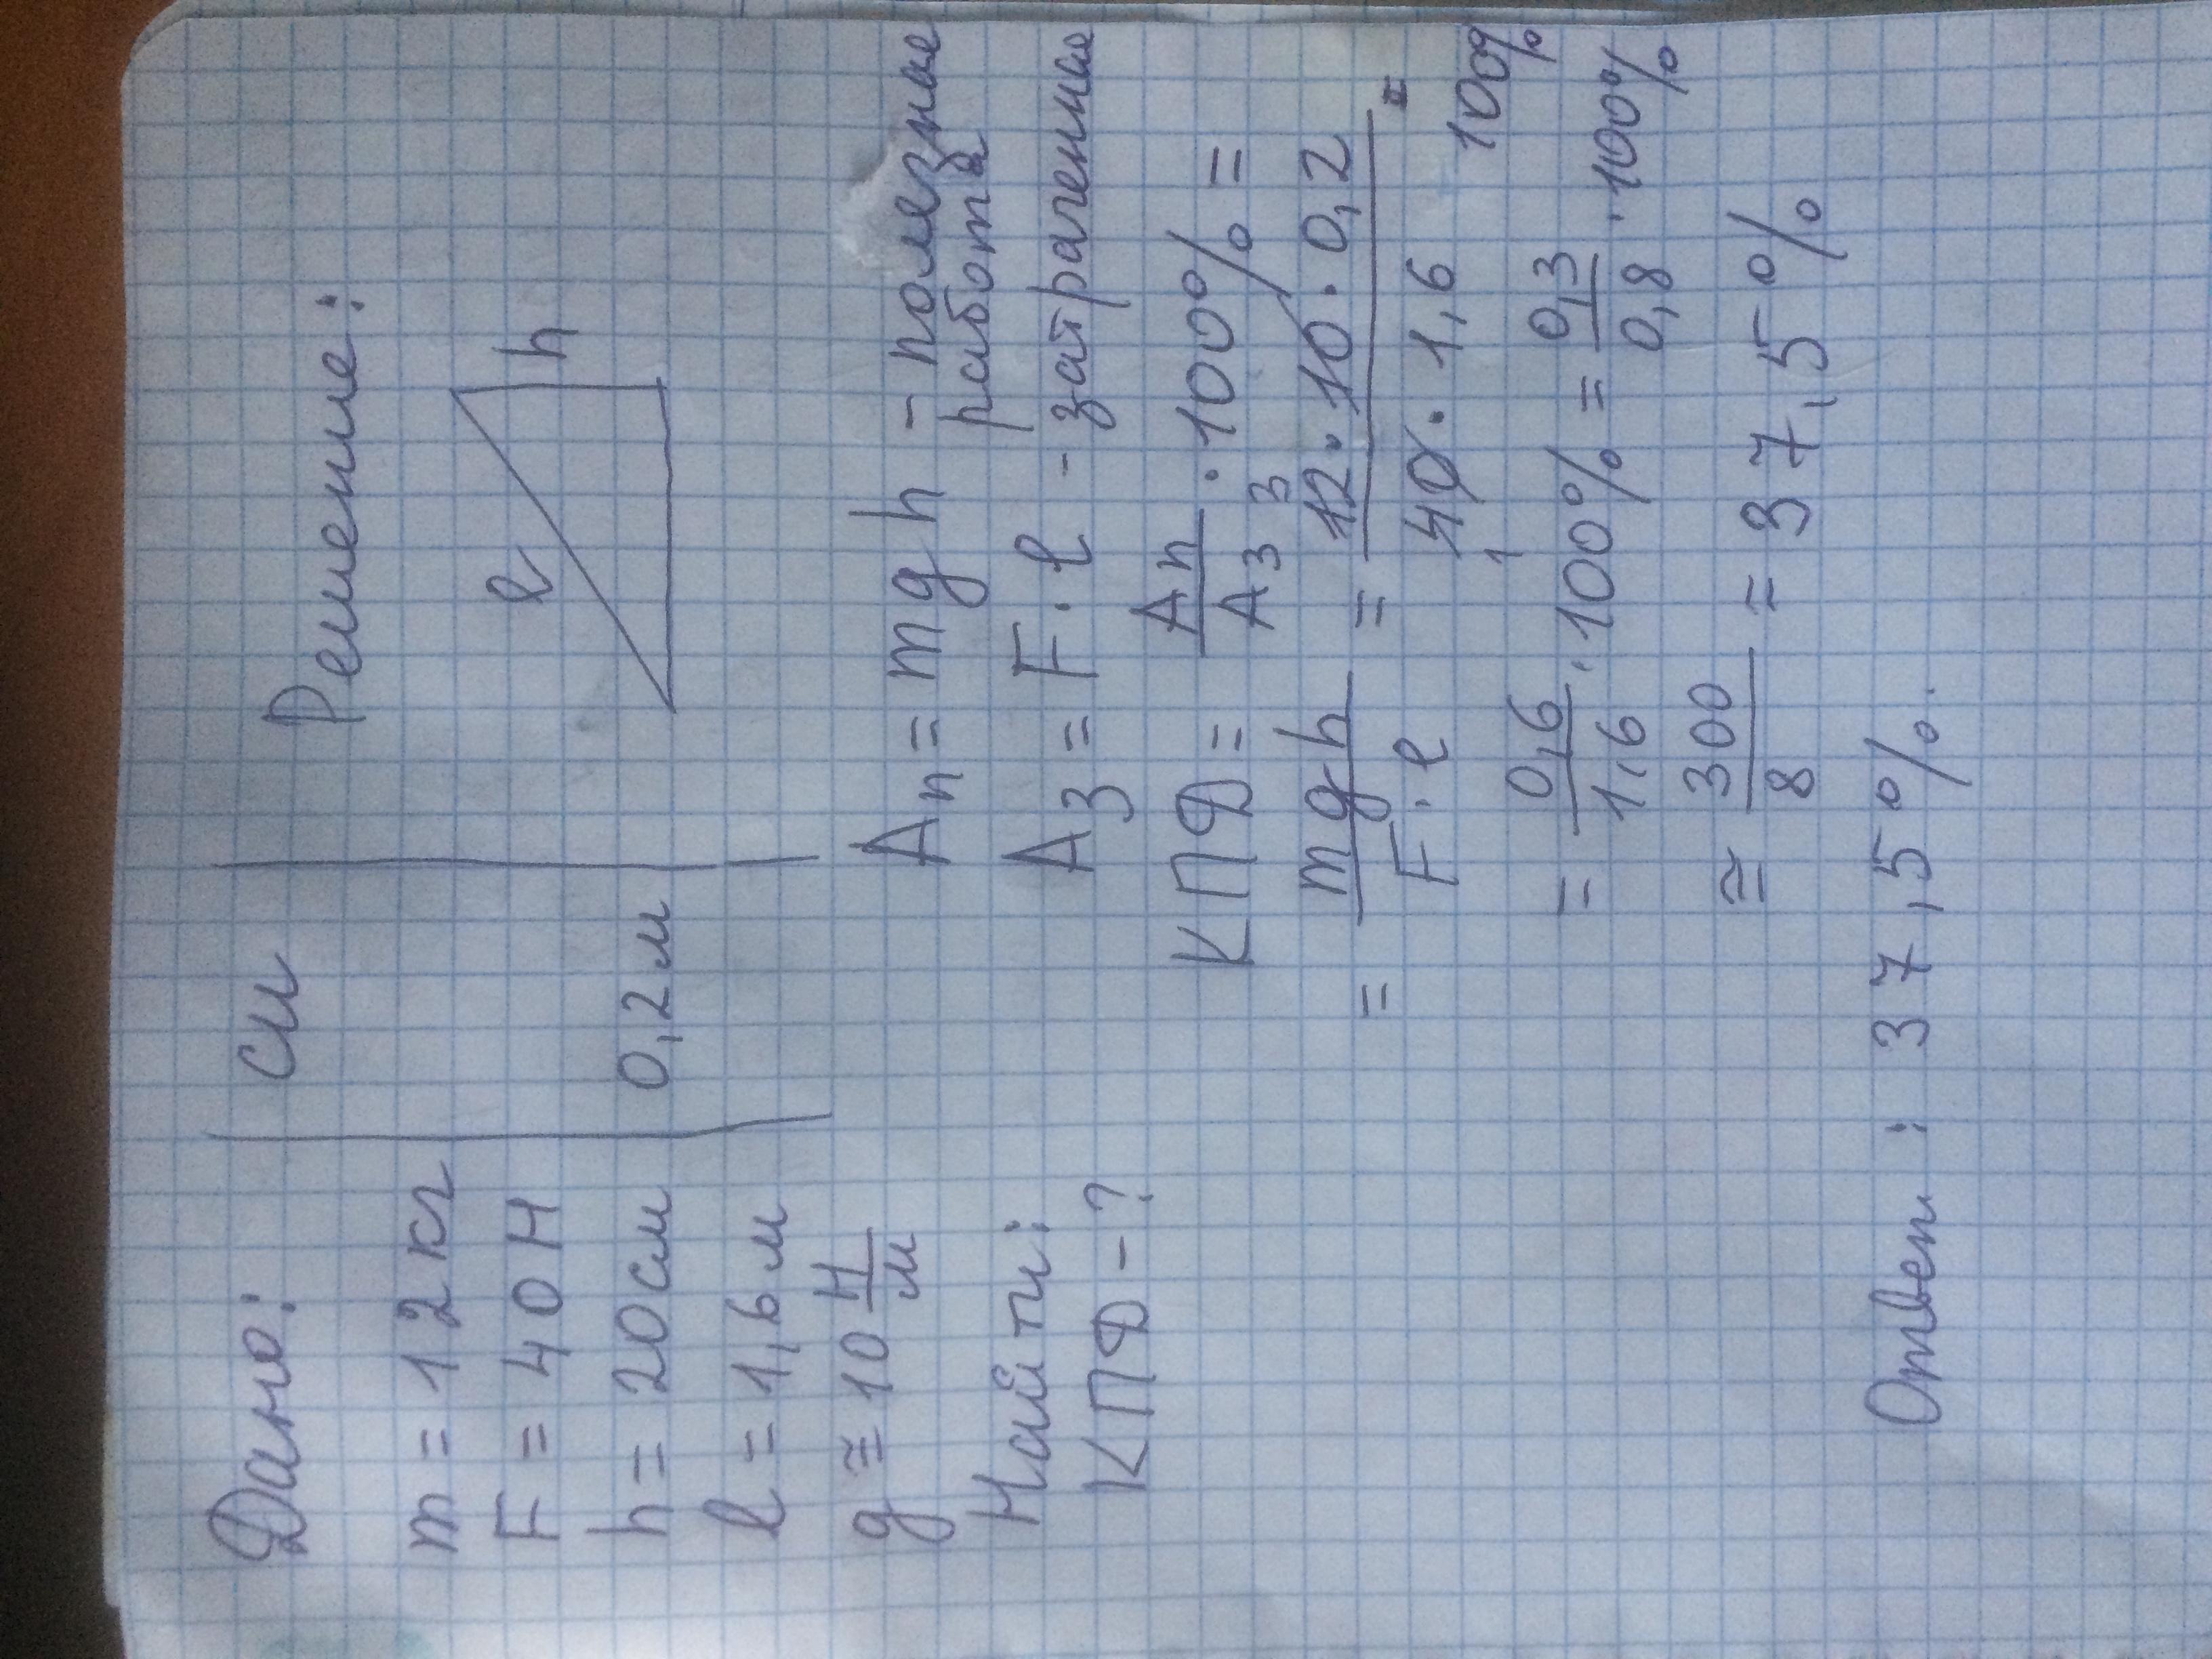 Дано:
m = 12 кг
F = 40 Н
h = 20 см
l = 1,6 м
g ≅ 10 Н/м
Найти:
КПД - ?
СИ
0,2 м
Решение:
l
h
Aп = mgh - полезная
работа
Aз = F · l - затраченная
КПД = Aп/Aз · 100% =
= mgh/F · l = 12 · 10 · 0,2/40 · 1,6 =
3
1
100%
= 0,6/1,6 · 100% = 0,3/0,8 · 100%
≅ 300/8 = 37,5%
Ответ: 37,5%.